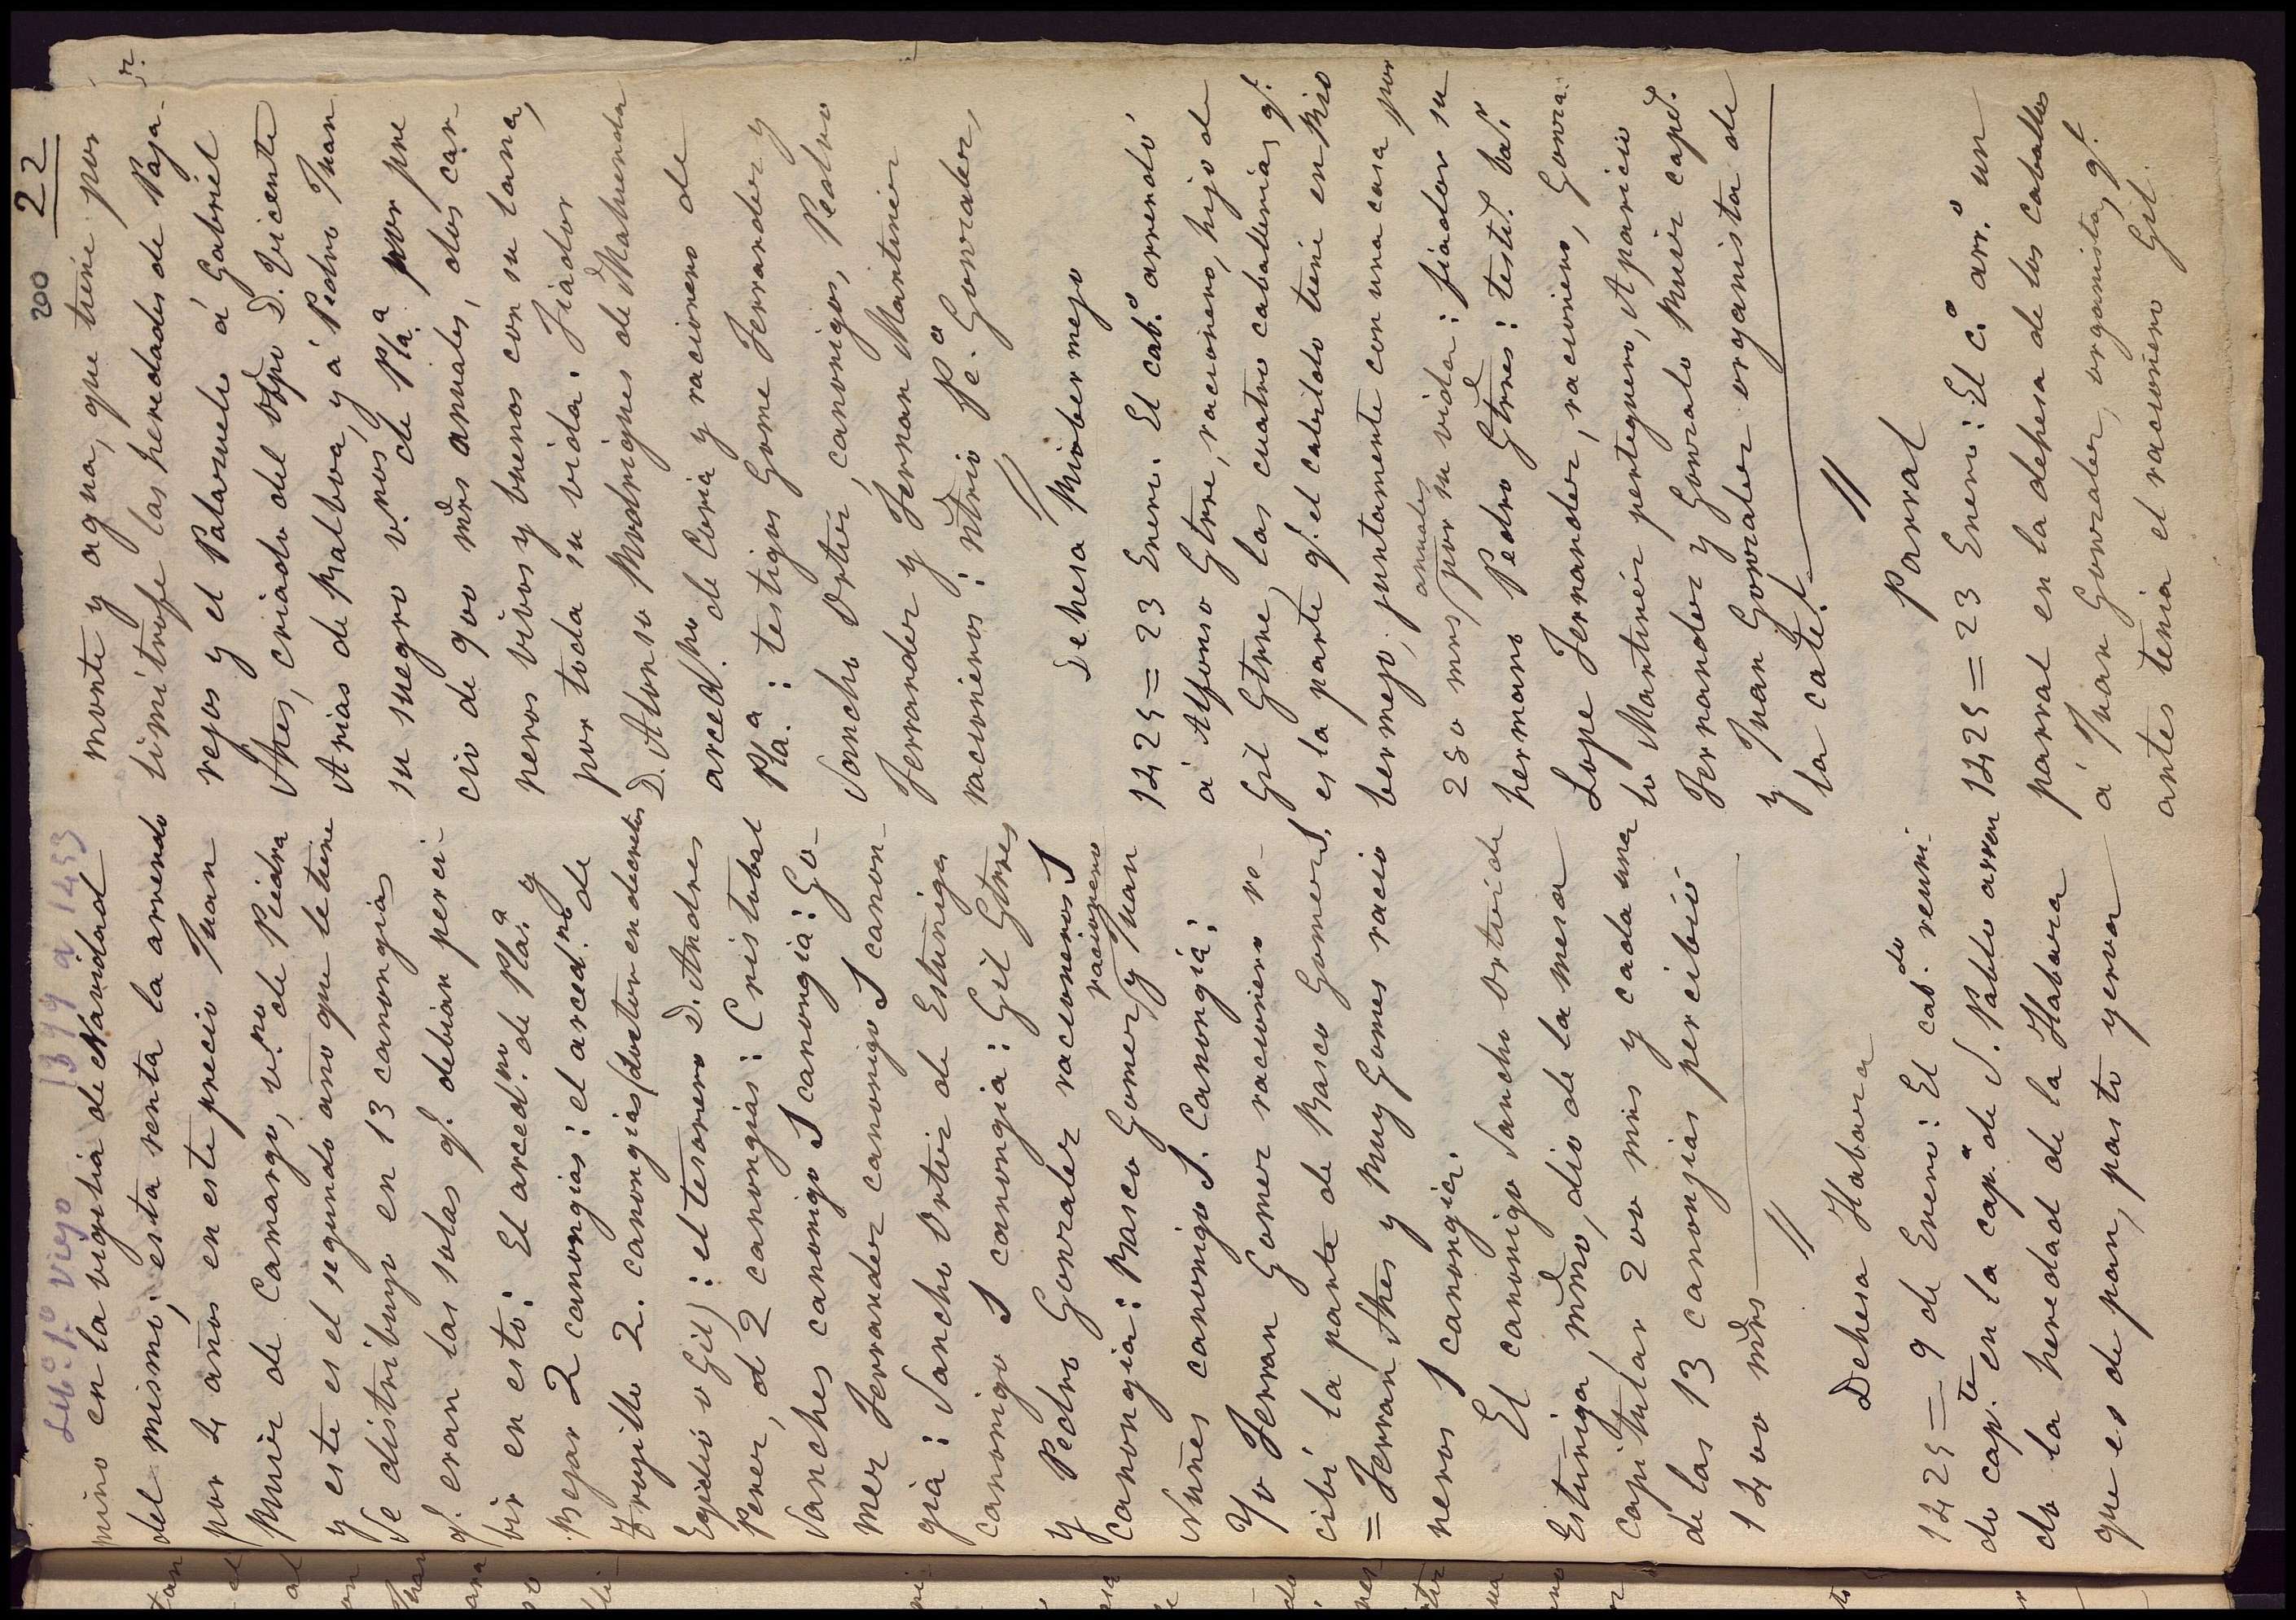 200
22
Lib.º 1.º viejo 1399 a 1453
pino en la vigilia de Navidad
del mismo; esta renta la arrendo
por 4 años en este precio Juan
Ruiz de Camargo, v.no de Piedra
y este es el segundo año que le tiene
Se distribuyo en 13 canongias
q.e eran las solas q.e debian perci-
bir en esto: El arced.no de Pla.a y
Bejar 2 canongias: el arced.no de
Trujillo 2. canongias (doctor en decretos
Egidio o Gil): el tesorero D. Andres
Perez, d 2 canongias: Cristobal
Sanches canonigo 1 canongia: Go-
mez Ferrandez canonigo 1 canon-
gia: Sancho Ortiz de Estuñiga
canonigo 1 canongia: Gil Gtres
y Pedro Gonzalez racioneros 1
canongia: Basco Gomez racionero y Juan
Nuñes canonigo 1. Canongia:
Yo Ferran Gomez racionero re-
cibí la parte de Basco Gomez 1.
= Ferran Shes y Ruy Gomes racio
neros 1 canongia.
El canonigo Sancho Ortiz de
Estuñiga, mdmo, dio de la mesa
Capitular 200 mrs y cada una
de las 13 canonjias percibió
1400 mdrs
//
Dehesa Habaza
1425 = 9 de Enero: El cab.do reuni-
do cap.te en la cap.a de S. Pablo arren
do la heredad de la Habaza
que es de pan, pasto y yerva
monte y agua, que tiene por
limitrofe las heredades de Paja-
rejos y el Palazuelo á Gabriel
Shes, criado del obpo D. Vicente
Arias de Balboa, y á Pedro Juan
su suegro v.nos de Pla.a por pre
cio de 900 mdrs anuales, dos car-
neros vivos y buenos con su lana,
por toda su vida. Fiador
D. Alonso Rodrigues de Maluenda
arced.no de Coria y racionero de
Pla.a: testigos Gome Ferrandez y
Sancho Ortiz, canonigos, Pedro
Ferrandez y Fernan Martinez
racioneros: ntrio P.e Gonzalez,
//
Dehesa Riobermejo
1425 = 23 Enero. El cab.o arrendó
á Alfonso Gtrre, racionero, hijo de
Gil Gtrre, las cuatro caballerias q.e
es la parte q.e el cabildo tiene en Rio
bermejo, juntamente con una casa por
250 mrs anuales por su vida: fiador su
hermano Pedro Gtrres: test.s ba.r
Lope Fernandez, racionero, Gonza-
lo Martinez pertiguero, Aparicio
Fernandez y Gonzalo Ruiz caped.
y Juan Gonzalez organista de
la cate.l
//
Parral
1425 = 23 Enero: El c.o arr.o un
parral en la dehesa de los caballos
á Juan Gonzalez, organista, q.e
antes tenia el racionero Gil.